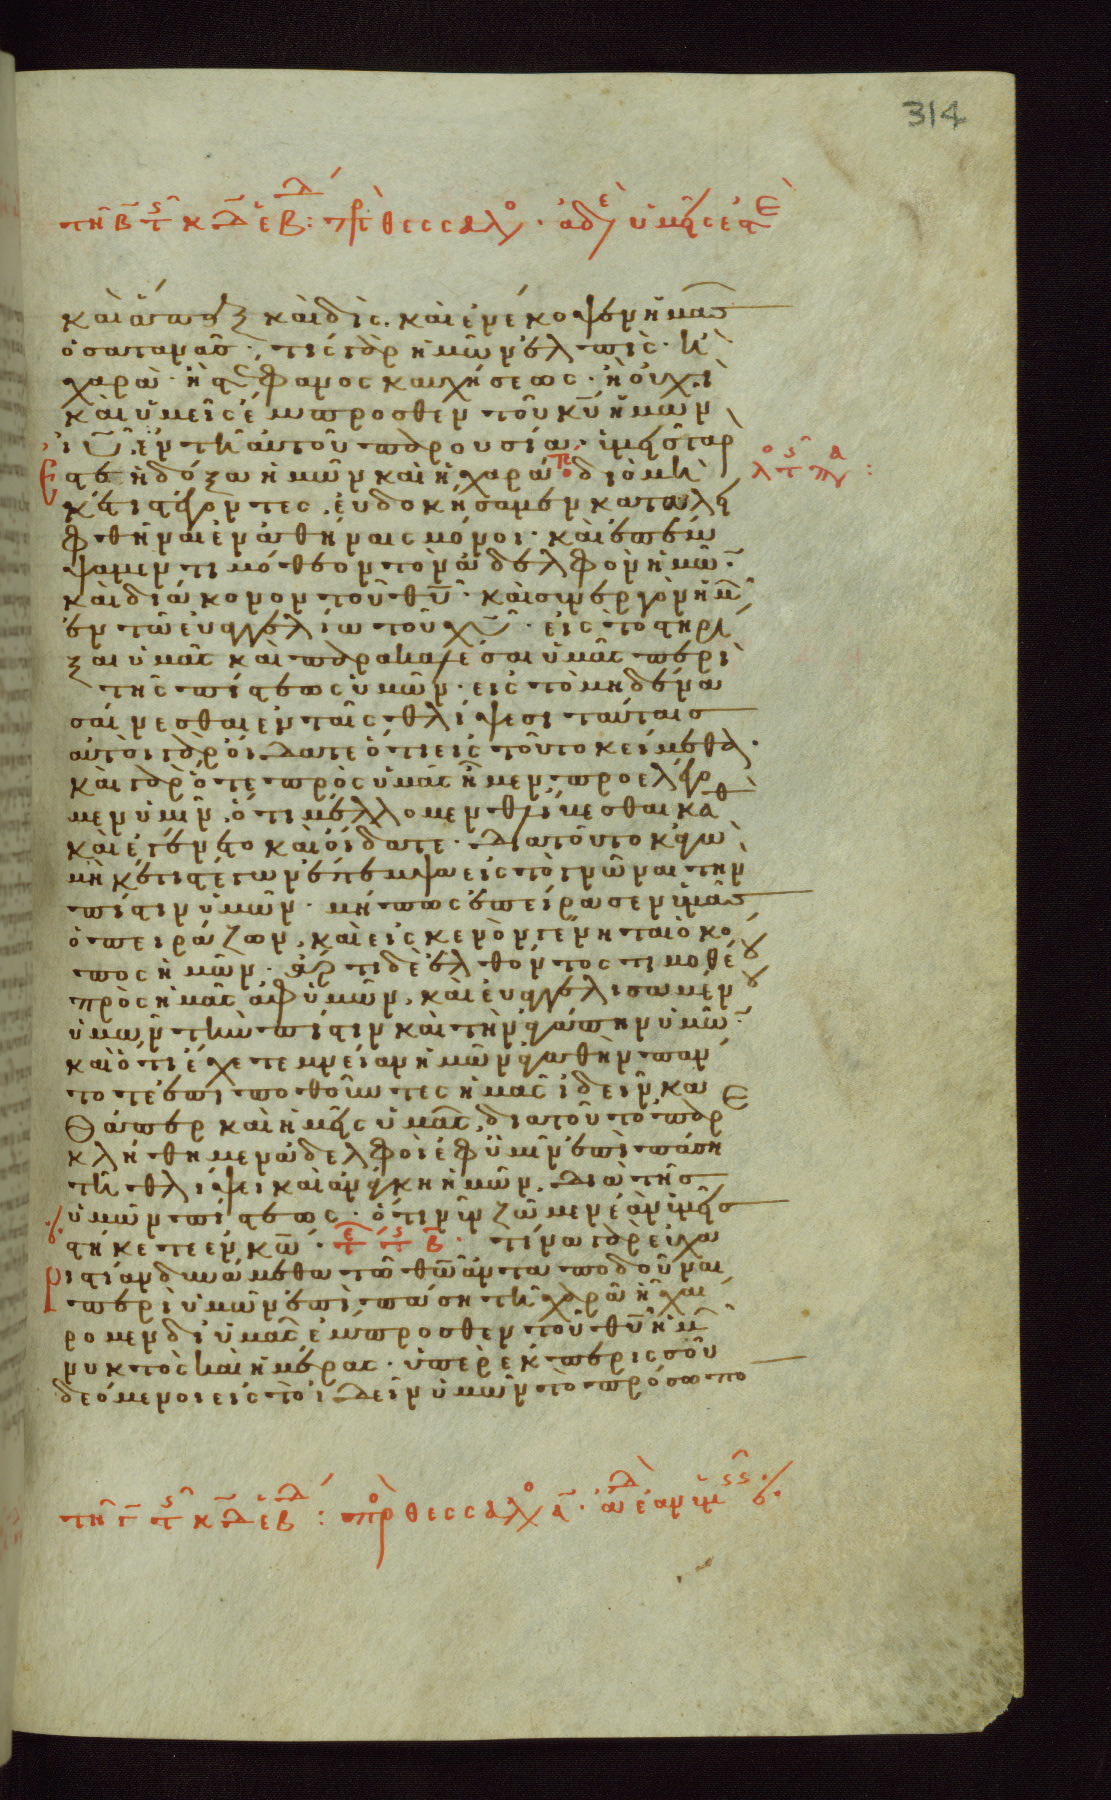 314
τῆ β ς κδ εβδ: πρ θεσσαλ· ἀδε ὑμεῖς ἐστὲ
καὶ ἅπαξ καὶ δὶς. καὶ ἐνέκοψεν ἡμᾶς
ὁ σατανᾶς· τίς γὰρ ἡμῶν ἐλπὶς· ἢ
χαρὰ· ἢ στέφανος καυχήσεως· ἢ οὐχὶ
καὶ ὑμεῖς ἔμπροσθεν τοῦ κυ ἡμῶν
ιυ ἐν τῆ αὐτοῦ παρουσία· ὑμεῖς γὰρ
ἐστε ἡ δόξα ἡμῶν καὶ ἡ χαρὰ· διὸ μὴ
κέτι στέγοντες, εὐδοκήσαμεν καταλει
φθῆναι ἐν ἀθήναις μόνοι· καὶ ἐπέμ
ψαμεν τιμόθεον τὸν ἀδελφὸν ἡμῶν·
καὶ διάκονον τοῦ θυ· καὶ συνεργὸν ἡμῶν
ἐν τῶ εὐαγγελίω τοῦ χυ· εἰς τὸ στηρί
ξαι ὑμᾶς καὶ παρακαλέσαι ὑμᾶς περὶ
τῆς πίστεως ὑμῶν· εἰς τὸ μηδένα
σαίνεσθαι ἐν ταῖς θλίψεσι ταύταις
αὐτοὶ γὰρ οἴδατε ὅτι εἰς τοῦτο κείμεθα·
καὶ γὰρ ὅτε πρὸς ὑμᾶς ἦμεν προελέγο
μεν ὑμῖν, ὅτι μέλλομεν θλίβεσθαι καθὼς
καὶ ἐγένετο καὶ οἴδατε· διὰ τοῦτο κἀγὼ
μὴκέτι στέγων ἔπεμψα εἰς τὸ γνῶναι τὴν
πίστιν ὑμῶν· μήπως ἐπείρασεν ὑμᾶς
ὁ πειράζων, καὶ εἰς κενὸν γένηται ὁ κό
πος ἡμῶν· ἄρτι δὲ ἐλθόντος τιμοθέου
πρὸς ἡμᾶς ἀφ ὑμῶν, καὶ εὐαγγελισαμένου
ὑμῶν τὴν πίστιν καὶ τὴν ἀγάπην ὑμῶν·
καὶ ὅτι ἔχετε μνείαν ἡμῶν ἀγαθὴν πάν
τοτέ ἐπιποθοῦντες ἡμᾶς ἰδεῖν κα
θάπερ καὶ ἡμεῖς ὑμᾶς, διὰ τοῦτο παρε
κλήθημεν ἀδελφοὶ ἐφ ὑμῖν ἐπὶ πάση
τῆ θλίψει καὶ ἀνάγκη ἡμῶν, διὰ τῆς
ὑμῶν πίστεως· ὅτι νῦν ζῶμεν ἐὰν ὑμεῖς
στήκετε ἐν κω· τίνα γὰρ εὐχα
ριστίαν δυνάμεθα τῶ θω ἀνταποδοῦναι
περὶ ὑμῶν ἐπὶ πάση τῆ χαρᾶ ἧ χαί
ρομεν δι ὑμᾶς ἔμπροσθεν τοῦ θυ ἡμῶν
νυκτὸς καὶ ἡμέρας· ὑπερεκπερισσοῦ
δεόμενοι εἰς τὸ ἰδεῖν ὑμῶν τὸ πρόσωπο
τῆ γ ς κδ εβδ: πρὸ θεσσαλ α· ἀδ ἐὰν ὑμ